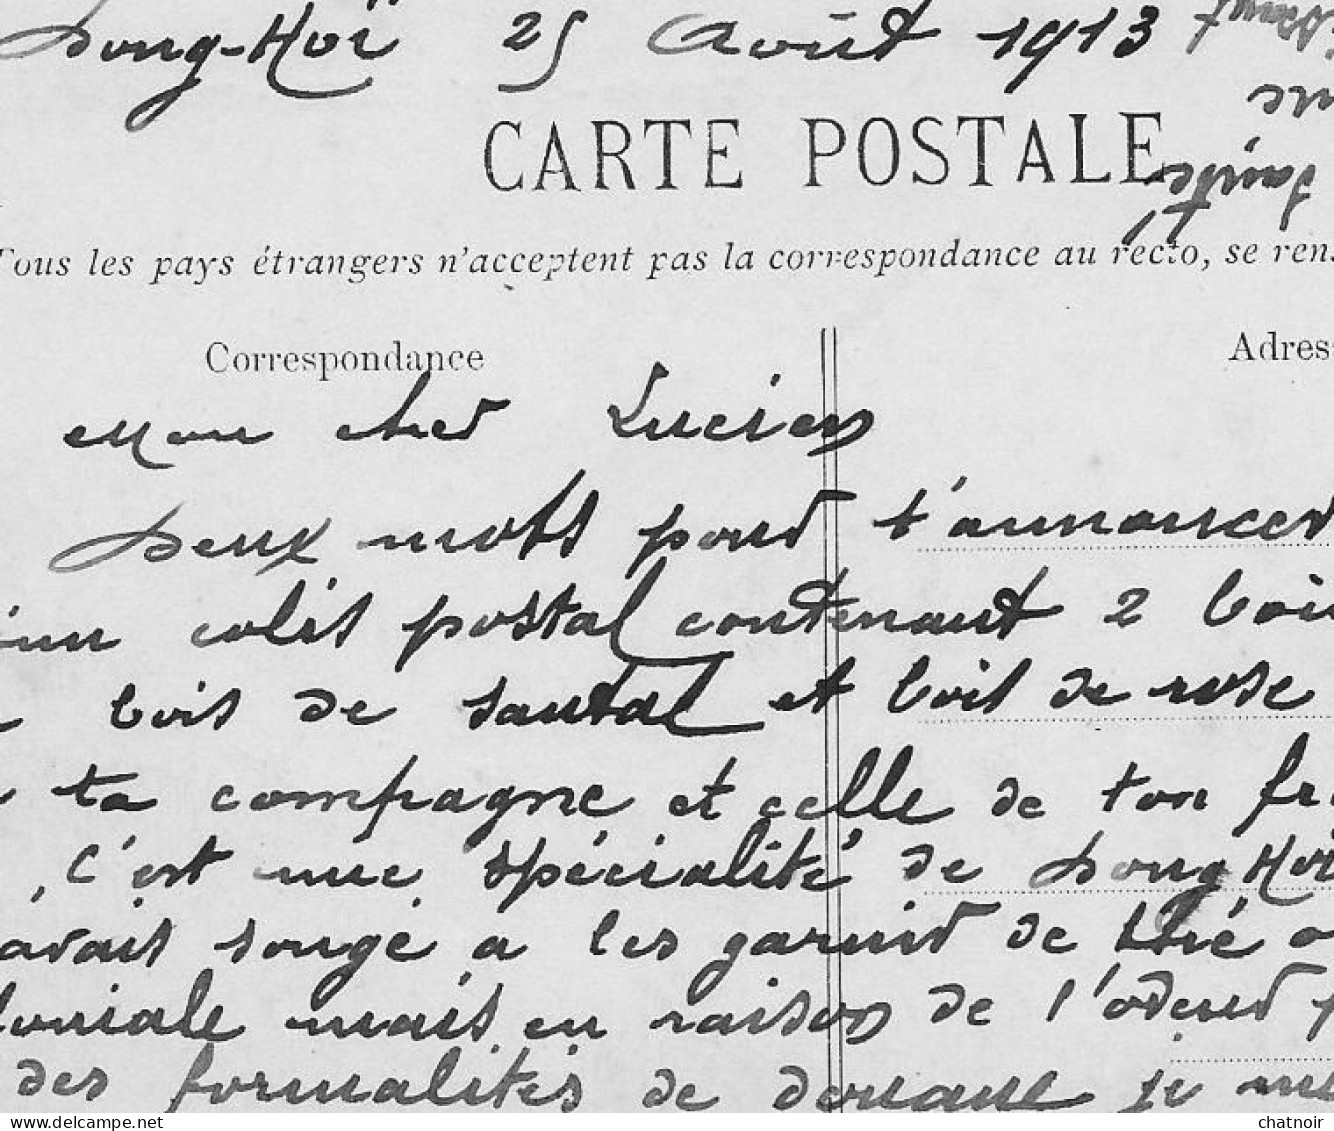 Dong-Hoï 25 Août 1913
CARTE POSTALE
Tous les pays étrangers n'acceptent pas la correspondance au recto, se rens
Correspondance
Adres
Mon cher Lucien
Deux mots pour t'annoncer
colis postal contenant 2
bois de santal et bois de rose
ta compagne et celle de ton fr
c'est une spécialité de Dong Hoï
avait songé à les garnir de thé
loniale mais en raison de l'odeur p
des formalités de douane je me
chatnoir